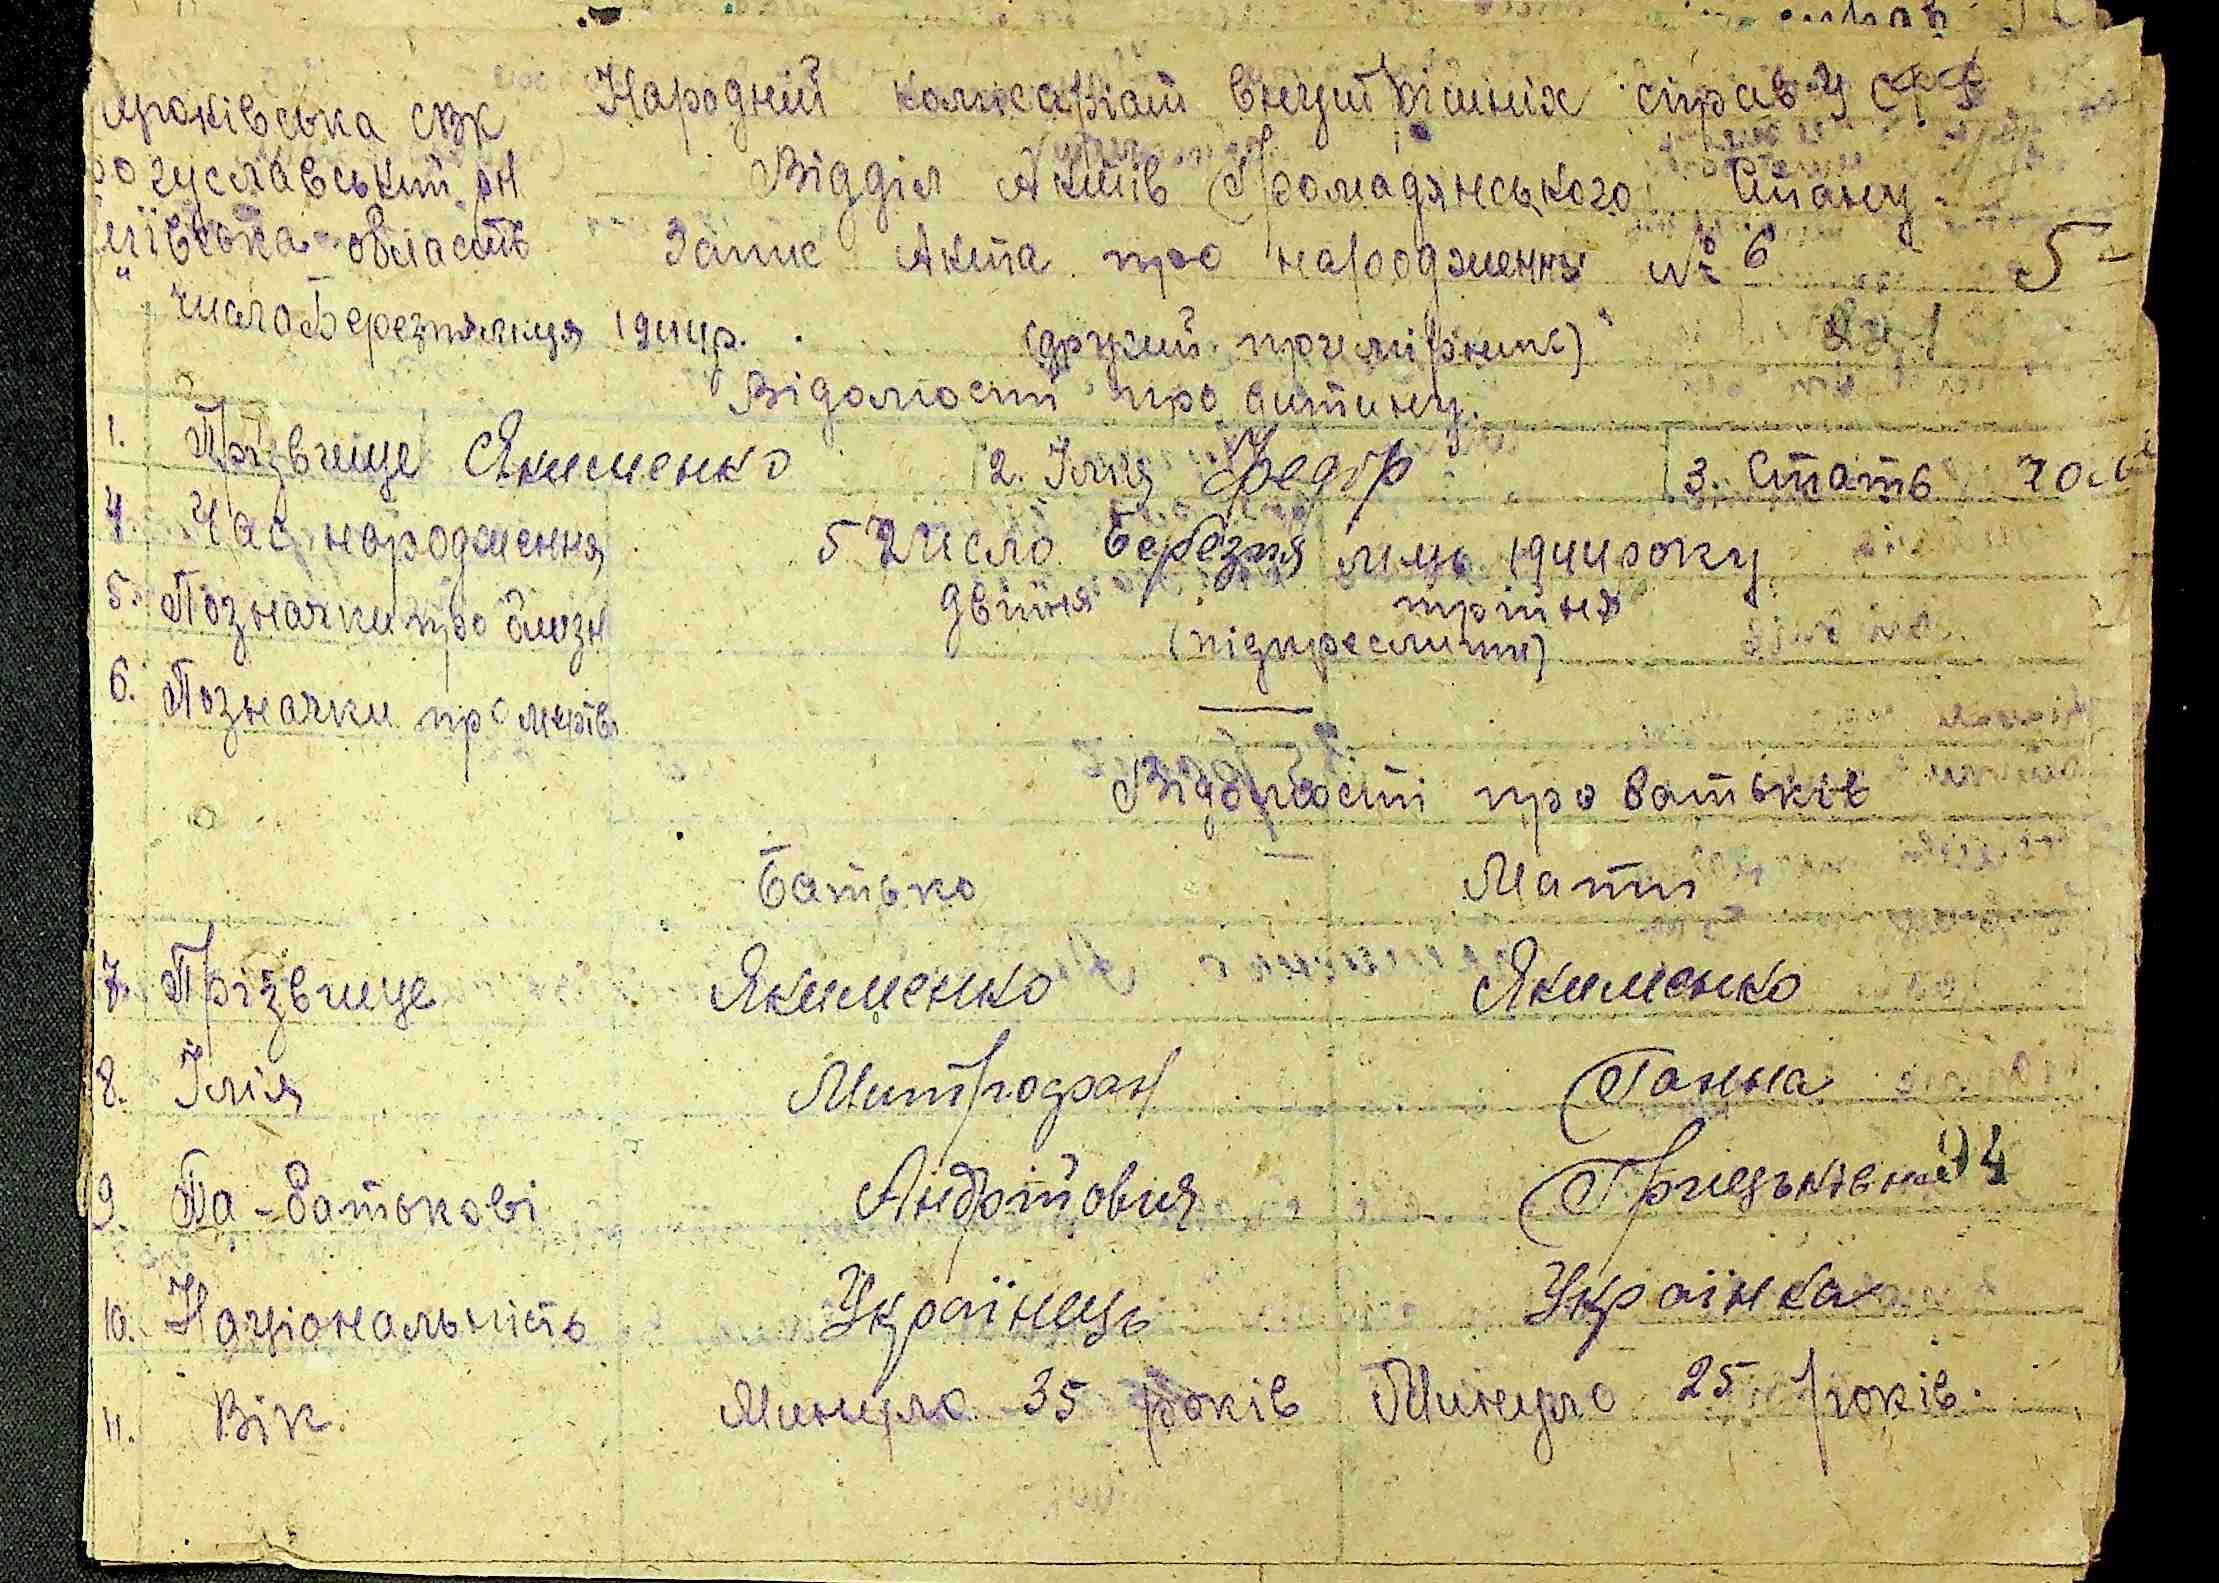 Народній комісаріат внутрішніх справ УСРР
Відділ Актів Громадянського Стану.
богуславський рн
область Запис Акта про народження № 6 5
числа Березня м-ця 1944р. (другий примірник)
Відомості про дитину.
1. Прізвище Якименко 2. Імя Федір 3. Стать чол
4. Час народження 5 число березня м-ць 1944 року
5. Позначки про близн двійня трійня
(підкреслити)
6. Позначки про мертв
Відомості про батьків
Батько Мати
7. Прізвище Якименко Якименко
8. Імія Митрофан Ганна
9. Па-батькові Андрійович Грицьківна
10. Національність Українець Українка
11. Вік Минуло 35 років Минуло 25 років.